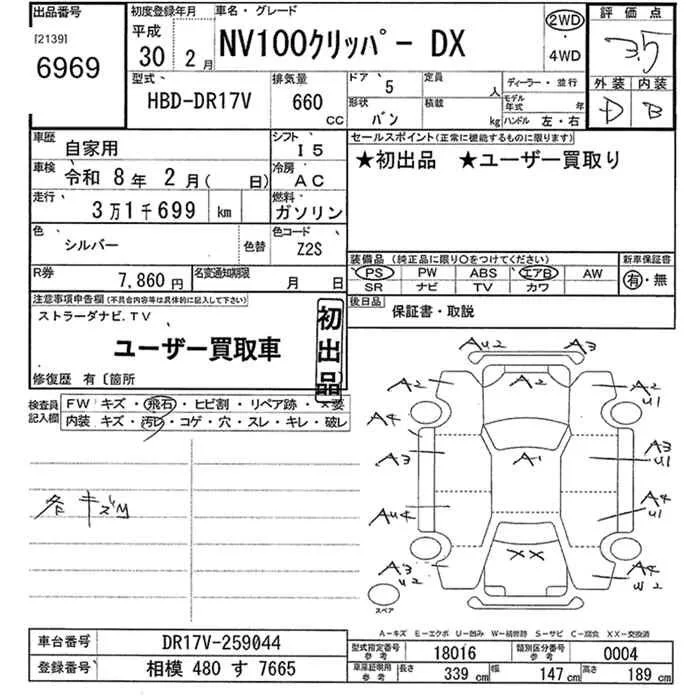 出品番号
[2139]
6969
初度登録年月
平成
30 2 月
車名・グレード
NV100クリッパー DX
2WD
・
4WD
評価点
3.5
外装 内装
D B
型式
HBD-DR17V
排気量
660
CC
ドア 5
形状 バン
定員 人
積載 kg
ディーラー・並行
モデル年式 年
ハンドル 左・右
車歴 自家用
シフト I5
車検 令和 8 年 2 月( 日)
冷房 AC
走行 3万1千699 km
燃料 ガソリン
色 シルバー
色替
色コード Z2S
R券 7,860 円
名変通知期限 月 日
セールスポイント(正常に機能するものに限ります)
★初出品 ★ユーザー買取り
装備品(純正品に限り○をつけてください)
PS PW ABS エアB AW
SR ナビ TV カワ
新車保証書
有・無
後日品
保証書・取説
注意事項申告欄(不具合内容等は具体的に記入して下さい)
ストラーダナビ.TV
ユーザー買取車
初出品
修復歴 有〔箇所
検査員記入欄
FW キズ・飛石・ヒビ割・リペア跡・×要
内装 キズ・汚レ・コゲ・穴・スレ・キレ・破レ
各キズ
AU2 A3
A2 A2 A2
U1
A4
A3 A1 A3
U1
AU4 A4
U1
XX
A3
U2
A4
スペア
A-キズ E-エクボ U-凹み W-補修跡 S-サビ C-腐食 XX-交換済
車台番号 DR17V-259044
登録番号 相模 480 す 7665
型式指定番号 参考 18016
類別区分番号 参考 0004
車庫証明用 参考 長さ 339 cm 幅 147 cm 高さ 189 cm